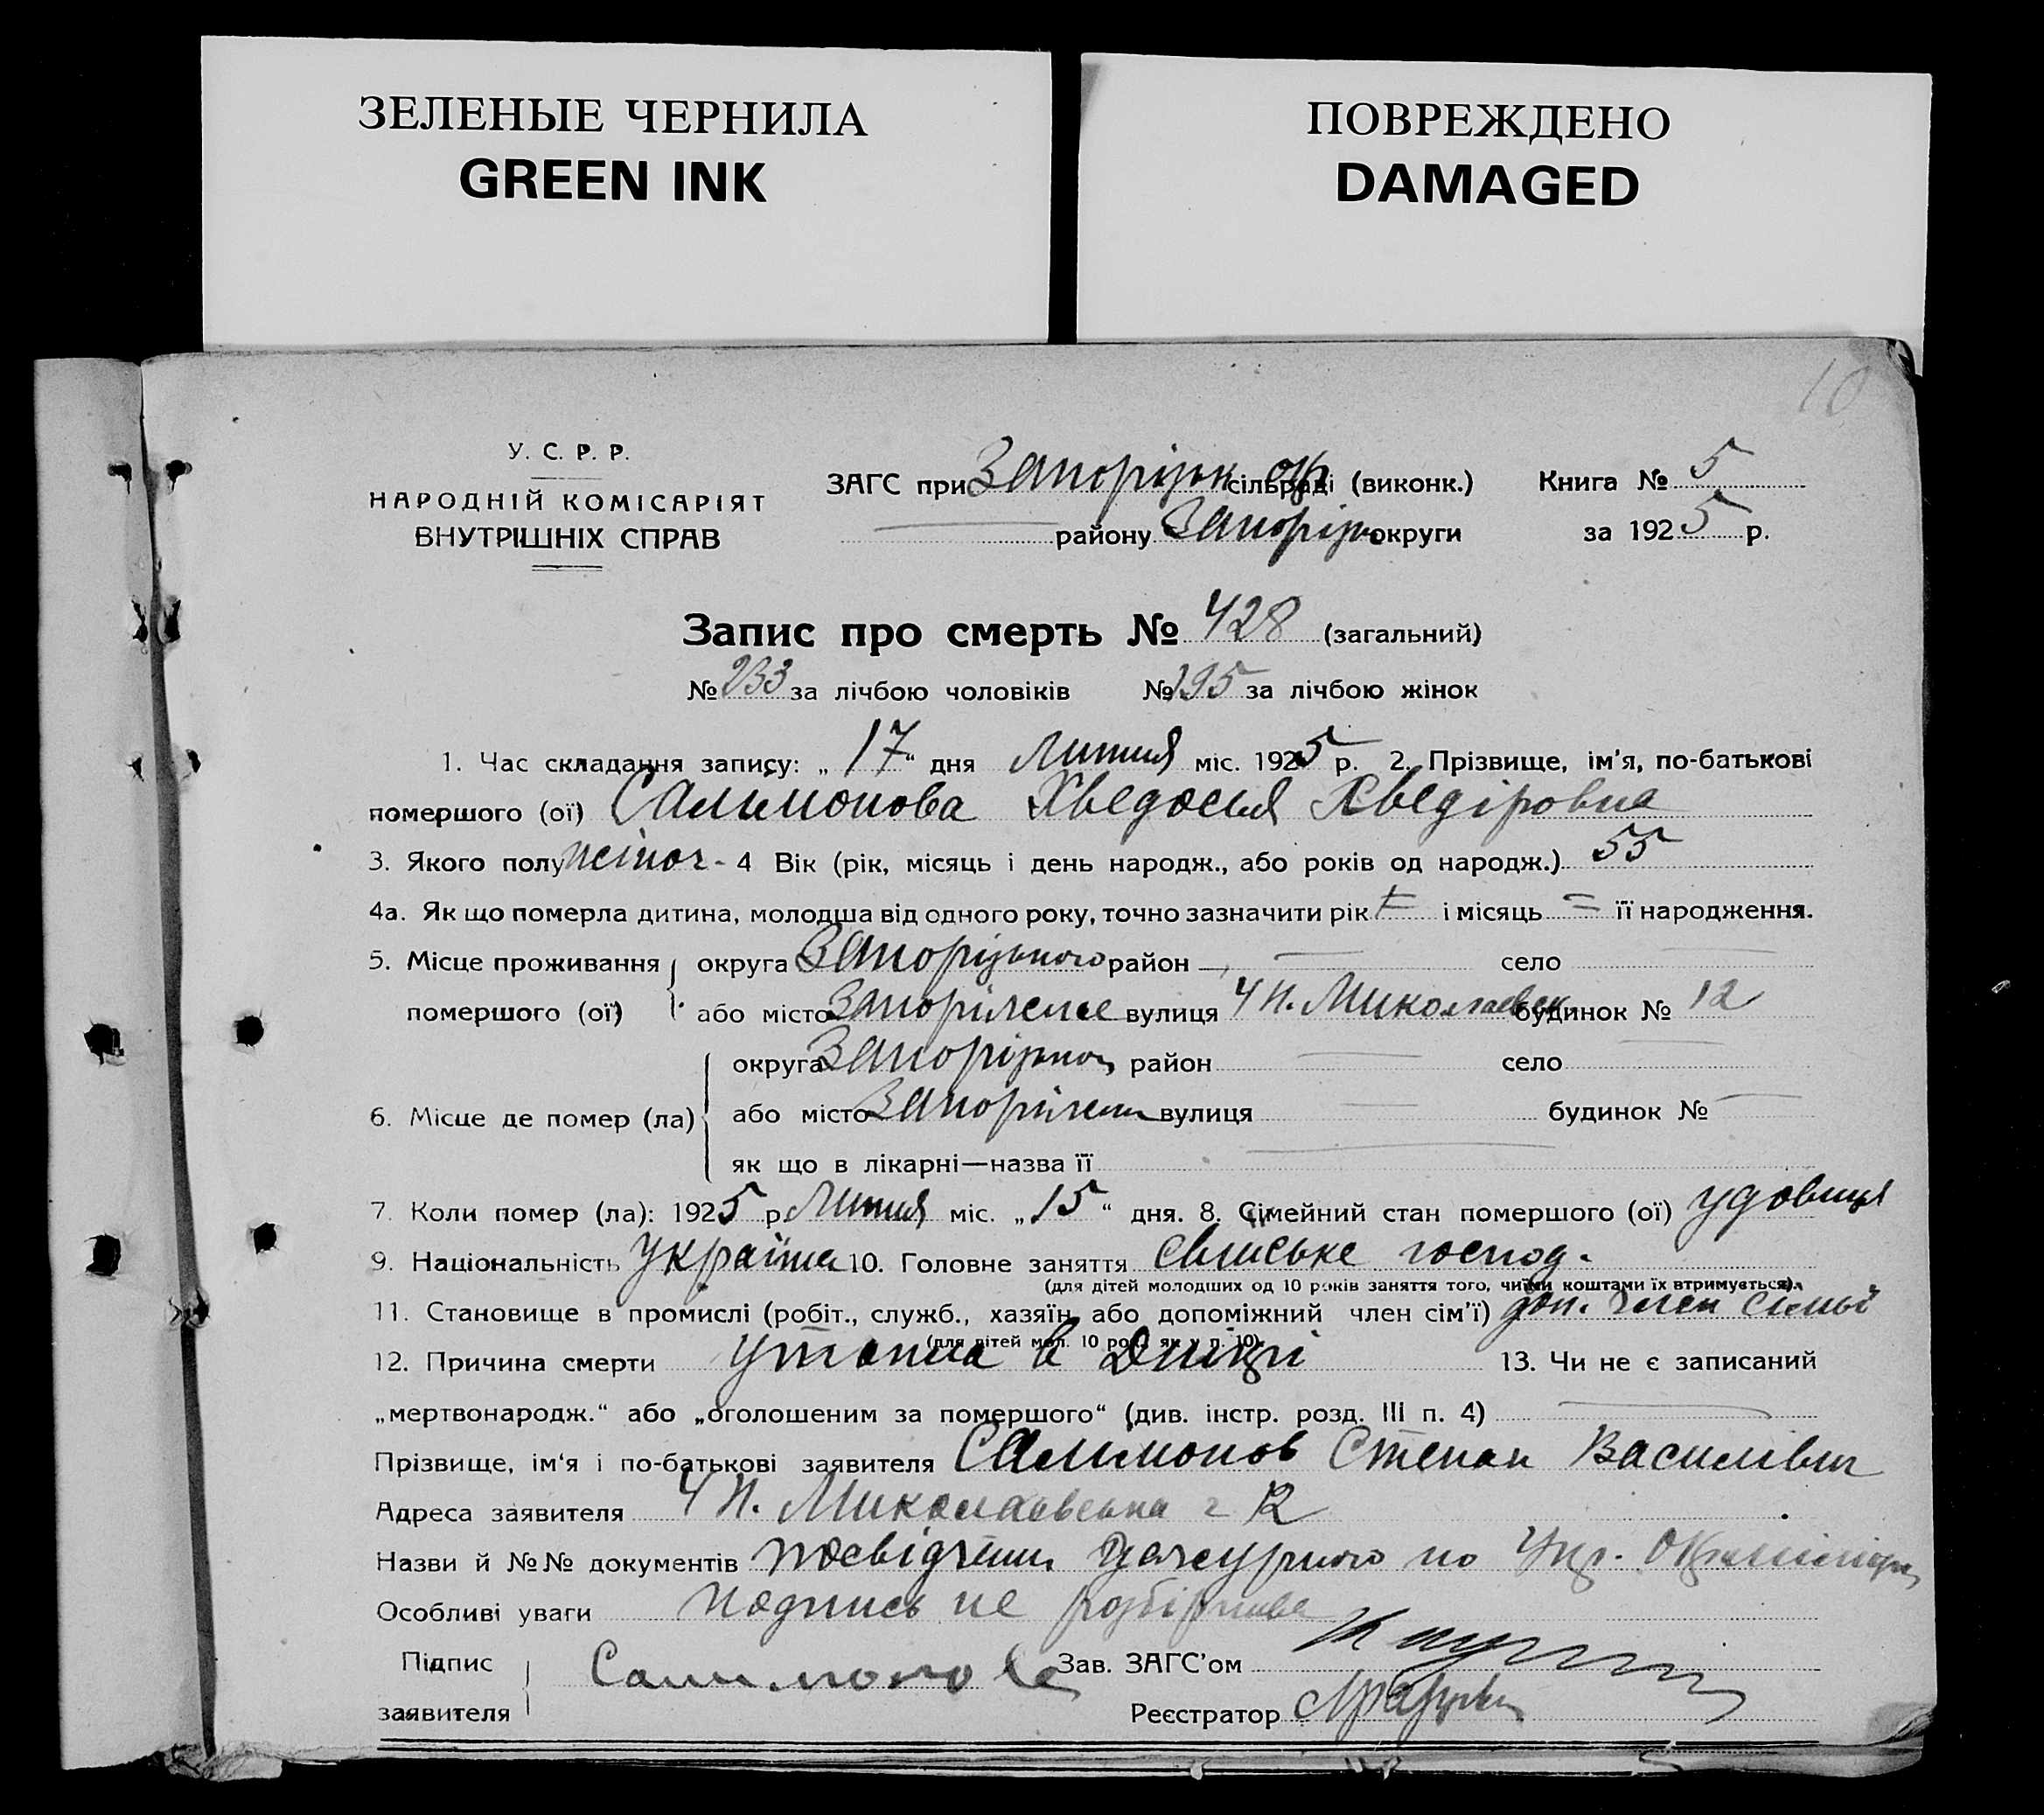 ЗЕЛЕНЫЕ ЧЕРНИЛА
GREEN INK
ПОВРЕЖДЕНО
DAMAGED
10
У. С. Р. Р.
НАРОДНІЙ КОМІСАРІЯТ
ВНУТРІШНІХ СПРАВ
ЗАГС при Запорізьк окр сільраді (виконк.) Книга № 5
району Запорізьк округи за 1925 р.
Запис про смерть № 428 (загальний)
№ 233 за лічбою чоловіків № 195 за лічбою жінок
1. Час складання запису: „17“ дня Липня міс. 1925 р. 2. Прізвище, ім'я, по-батькові
помершого (ої) Салимонова Хведосья Хведіровна
3. Якого полу жіноч- 4 Вік (рік, місяць і день народж., або років од народж.) 55
4а. Як що померла дитина, молодша від одного року, точно зазначити рік = і місяць = її народження.
5. Місце проживання округа Запорізького район — село
помершого (ої) або місто Запоріжже вулиця 4 п. Миколаевск будинок № 12
округа Запорізької район — село —
6. Місце де помер (ла) або місто Запоріжжя вулиця — будинок № —
як що в лікарні—назва її —
7. Коли помер (ла): 1925 р Липня міс. „15“ дня. 8. Сімейний стан помершого (ої) удовиця
9. Національність україна 10. Головне заняття сельське господ.
(для дітей молодших од 10 років заняття того, чиїми коштами їх втримується).
11. Становище в промислі (робіт., служб., хазяїн, або допоміжний член сім'ї) доп. член сімьї
(для дітей мол. 10 рок. як у п. 10)
12. Причина смерти утопла в Дніпрі 13. Чи не є записаний
„мертвонародж.“ або „оголошеним за помершого“ (див. інстр. розд. III п. 4) —
Прізвище, ім'я і по-батькові заявителя Салимонов Степан Василівич
Адреса заявителя 4 п. Миколаевська 12
Назви й №№ документів посвідчення дежурного по Упр. Окрміліції
Особливі уваги подпись не розбірчива
Підпис Салимонова Зав. ЗАГС'ом
заявителя Реєстратор